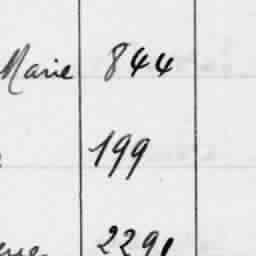 Marie 844
199
2291